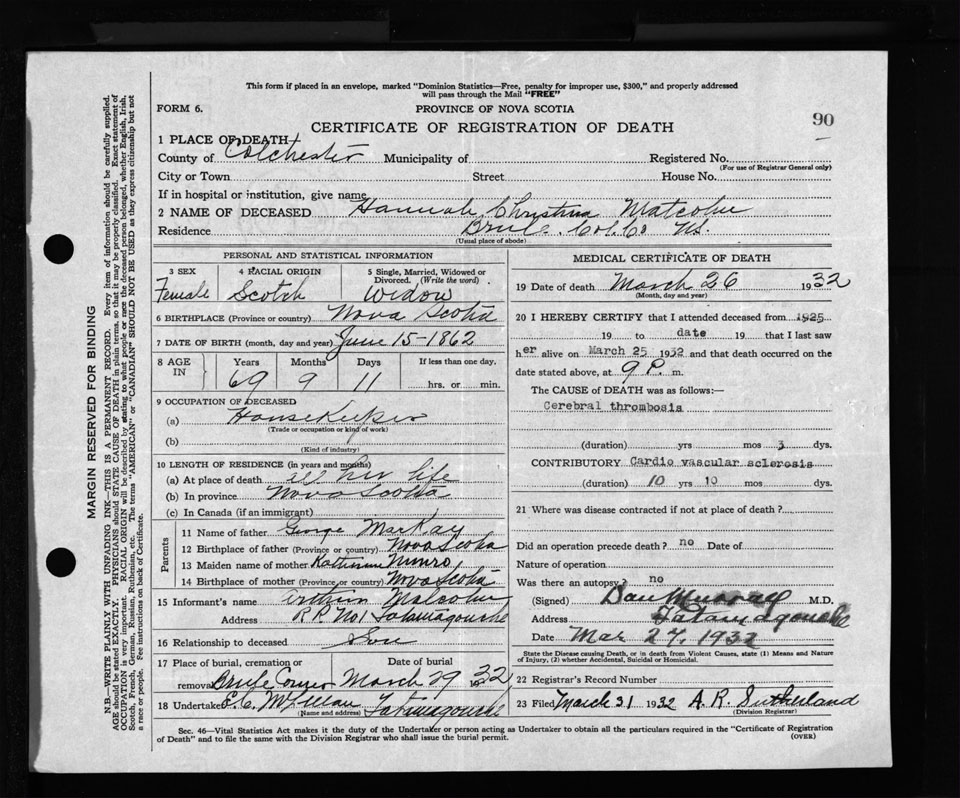 This form if placed in an envelope, marked "Dominion Statistics—Free, penalty for improper use, $300," and properly addressed
will pass through the Mail "FREE"
FORM 6.
PROVINCE OF NOVA SCOTIA
90
CERTIFICATE OF REGISTRATION OF DEATH
1 PLACE OF DEATH
County of Colchester Municipality of Registered No.
(For use of Registrar General only)
City or Town Street House No.
If in hospital or institution, give name
2 NAME OF DECEASED Hannah Christina Malcolm
Residence Brule Col. Co NS.
(Usual place of abode)
PERSONAL AND STATISTICAL INFORMATION
3 SEX 4 RACIAL ORIGIN 5 Single, Married, Widowed or Divorced. (Write the word)
Female Scotch Widow
6 BIRTHPLACE (Province or country) Nova Scotia
7 DATE OF BIRTH (month, day and year) June 15-1862
8 AGE IN Years Months Days If less than one day.
69 9 11 hrs. or min.
9 OCCUPATION OF DECEASED
(a) HouseKeeper
(Trade or occupation or kind of work)
(b)
(Kind of industry)
10 LENGTH OF RESIDENCE (in years and months)
(a) At place of death all her life
(b) In province Nova Scotia
(c) In Canada (if an immigrant)
Parents
11 Name of father George MacKay
12 Birthplace of father (Province or country) Nova Scotia
13 Maiden name of mother Munro
14 Birthplace of mother (Province or country) Nova Scotia
15 Informant's name Arthur Malcolm
Address R.R. No 1 Tatamagouche
16 Relationship to deceased Son
17 Place of burial, cremation or removal Date of burial
Brule Corner March 29 1932
18 Undertaker Tatamagouche
(Name and address)
MEDICAL CERTIFICATE OF DEATH
19 Date of death March 26 1932
(Month, day and year)
20 I HEREBY CERTIFY that I attended deceased from 1925
19 to date 19 that I last saw
her alive on March 25 1932 and that death occurred on the
date stated above, at 9 P. m.
The CAUSE OF DEATH was as follows:—
Cerebral thrombosis
(duration) yrs mos 3 dys.
CONTRIBUTORY Cardio vascular sclerosis
(duration) 10 yrs 10 mos dys.
21 Where was disease contracted if not at place of death?
Did an operation precede death? no Date of
Nature of operation
Was there an autopsy? no
(Signed) Dan Murray M.D.
Address Tatamagouche
Date Mar 27, 1932
State the Disease causing Death, or in death from Violent Causes, state (1) Means and
Nature of Injury, (2) whether Accidental, Suicidal or Homicidal.
22 Registrar's Record Number
23 Filed March 31 1932 A. R. Sutherland
(Division Registrar)
Sec. 46—Vital Statistics Act makes it the duty of the Undertaker or person acting as Undertaker to obtain all the particulars required in the "Certificate of Registration
of Death" and to file the same with the Division Registrar who shall issue the burial permit.
(OVER)
MARGIN RESERVED FOR BINDING
N.B.—WRITE PLAINLY WITH UNFADING INK—THIS IS A PERMANENT RECORD. Every item of information should be carefully supplied.
AGE should be stated EXACTLY. PHYSICIANS should STATE CAUSE OF DEATH in plain terms, so that it may be properly classified. Exact statement of
OCCUPATION is very important. RACIAL ORIGIN will be described by stating to what people or race the deceased person belonged, whether English, Irish,
Scotch, French, German, Russian, Ruthenian, etc. The terms "AMERICAN" or "CANADIAN" SHOULD NOT BE USED as they express citizenship but not
a race or people. See instructions on back of Certificate.